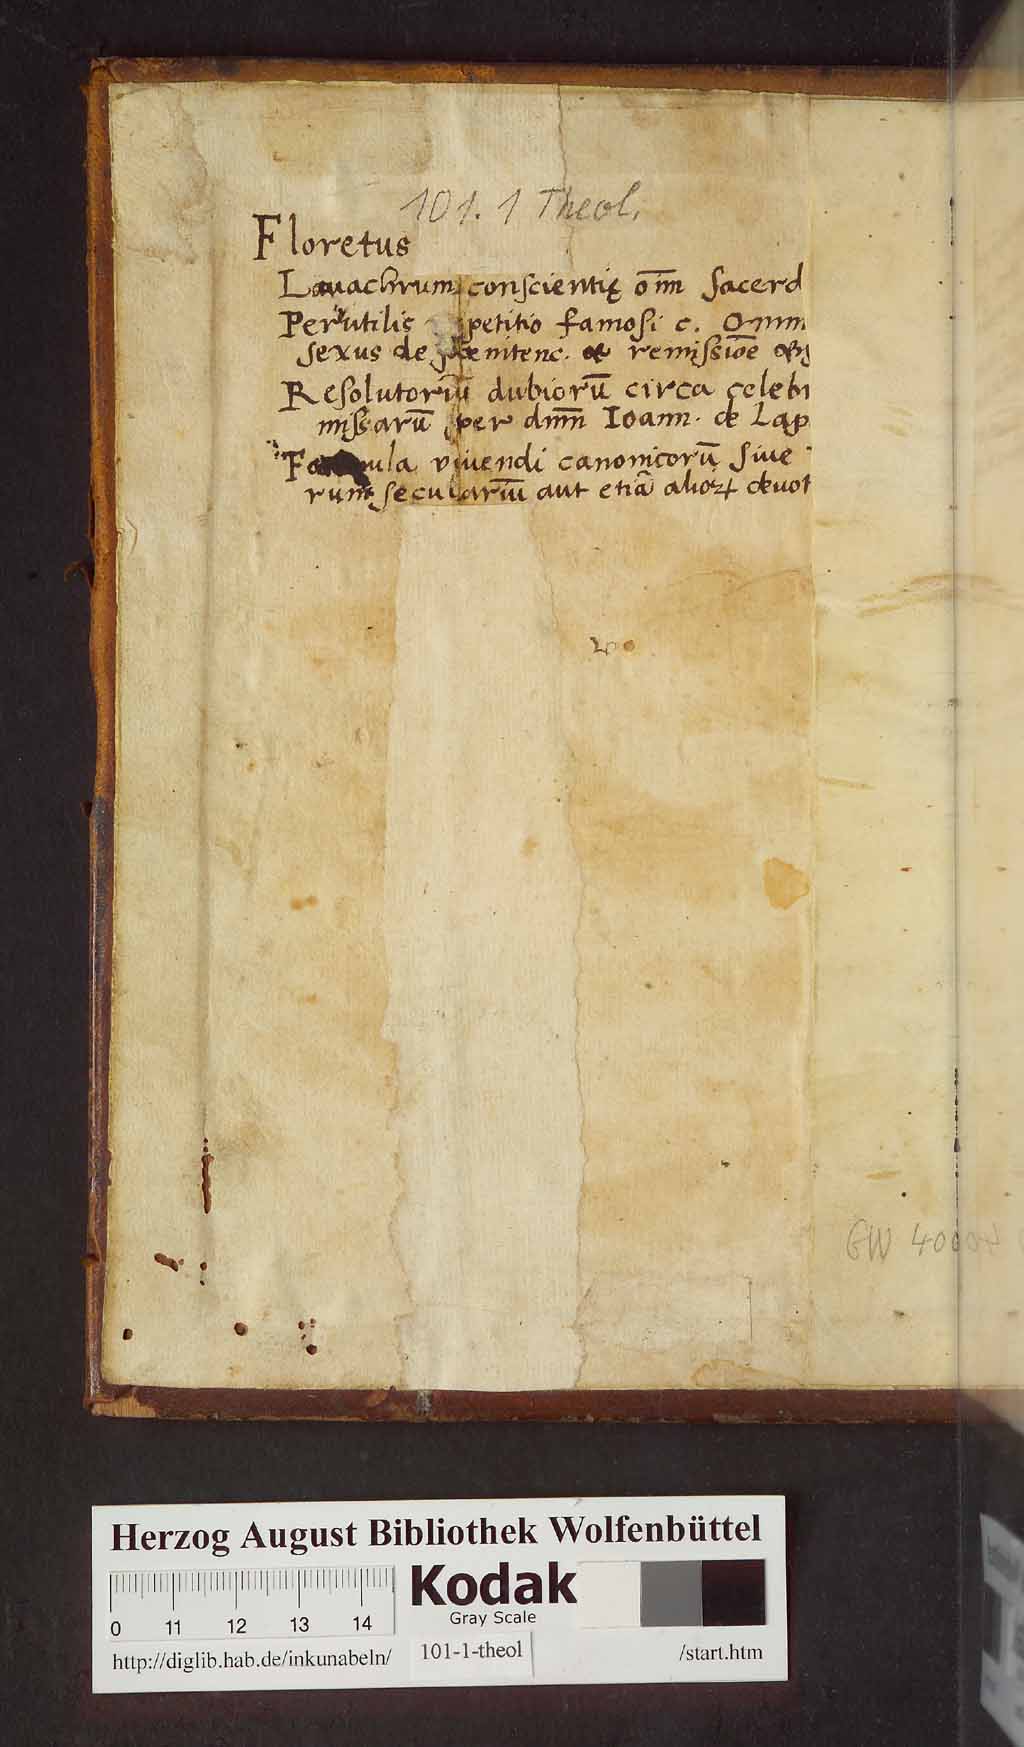 101. 1 Theol.
Floretus
Lauachrum conscientię om̄m sacerd
Perutilis petitio famosi c. Omnn
sexus de penitenc. et remissioē
Resolutoriū dubiorū circa celebr
missarū per dnm̄ Ioann. de Lap
vivendi canonicorū sive
rum secularium aut etiā alioꝝ devot
GW
Herzog August Bibliothek Wolfenbüttel
Kodak
Gray Scale
0 11 12 13 14
http://diglib.hab.de/inkunabeln/ 101-1-theol /start.htm